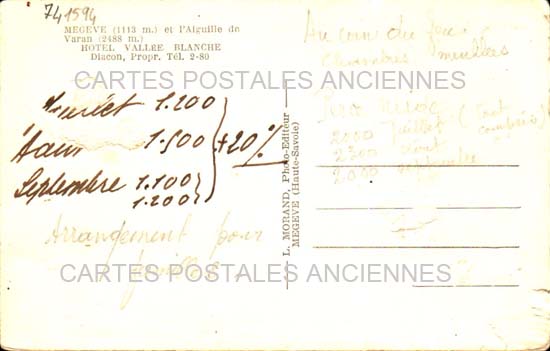 741594
MEGEVE (1113 m.) et l'Aiguille de
Varan (2488 m.)
HOTEL VALLÉE BLANCHE
Diacon, Propr. Tél. 2-80
CARTES POSTALES ANCIENNES
Juillet 1.200
Août 1.500 + 20%
Septembre 1.100
1.200
Arrangement pour
familles
L. MORAND, Photo-Editeur
MEGEVE (Haute-Savoie)
Au coin du feu
Chambres meublées
2000 Juillet (Tout
compris)
2300 Août
2000 septembre
CARTES POSTALES ANCIENNES